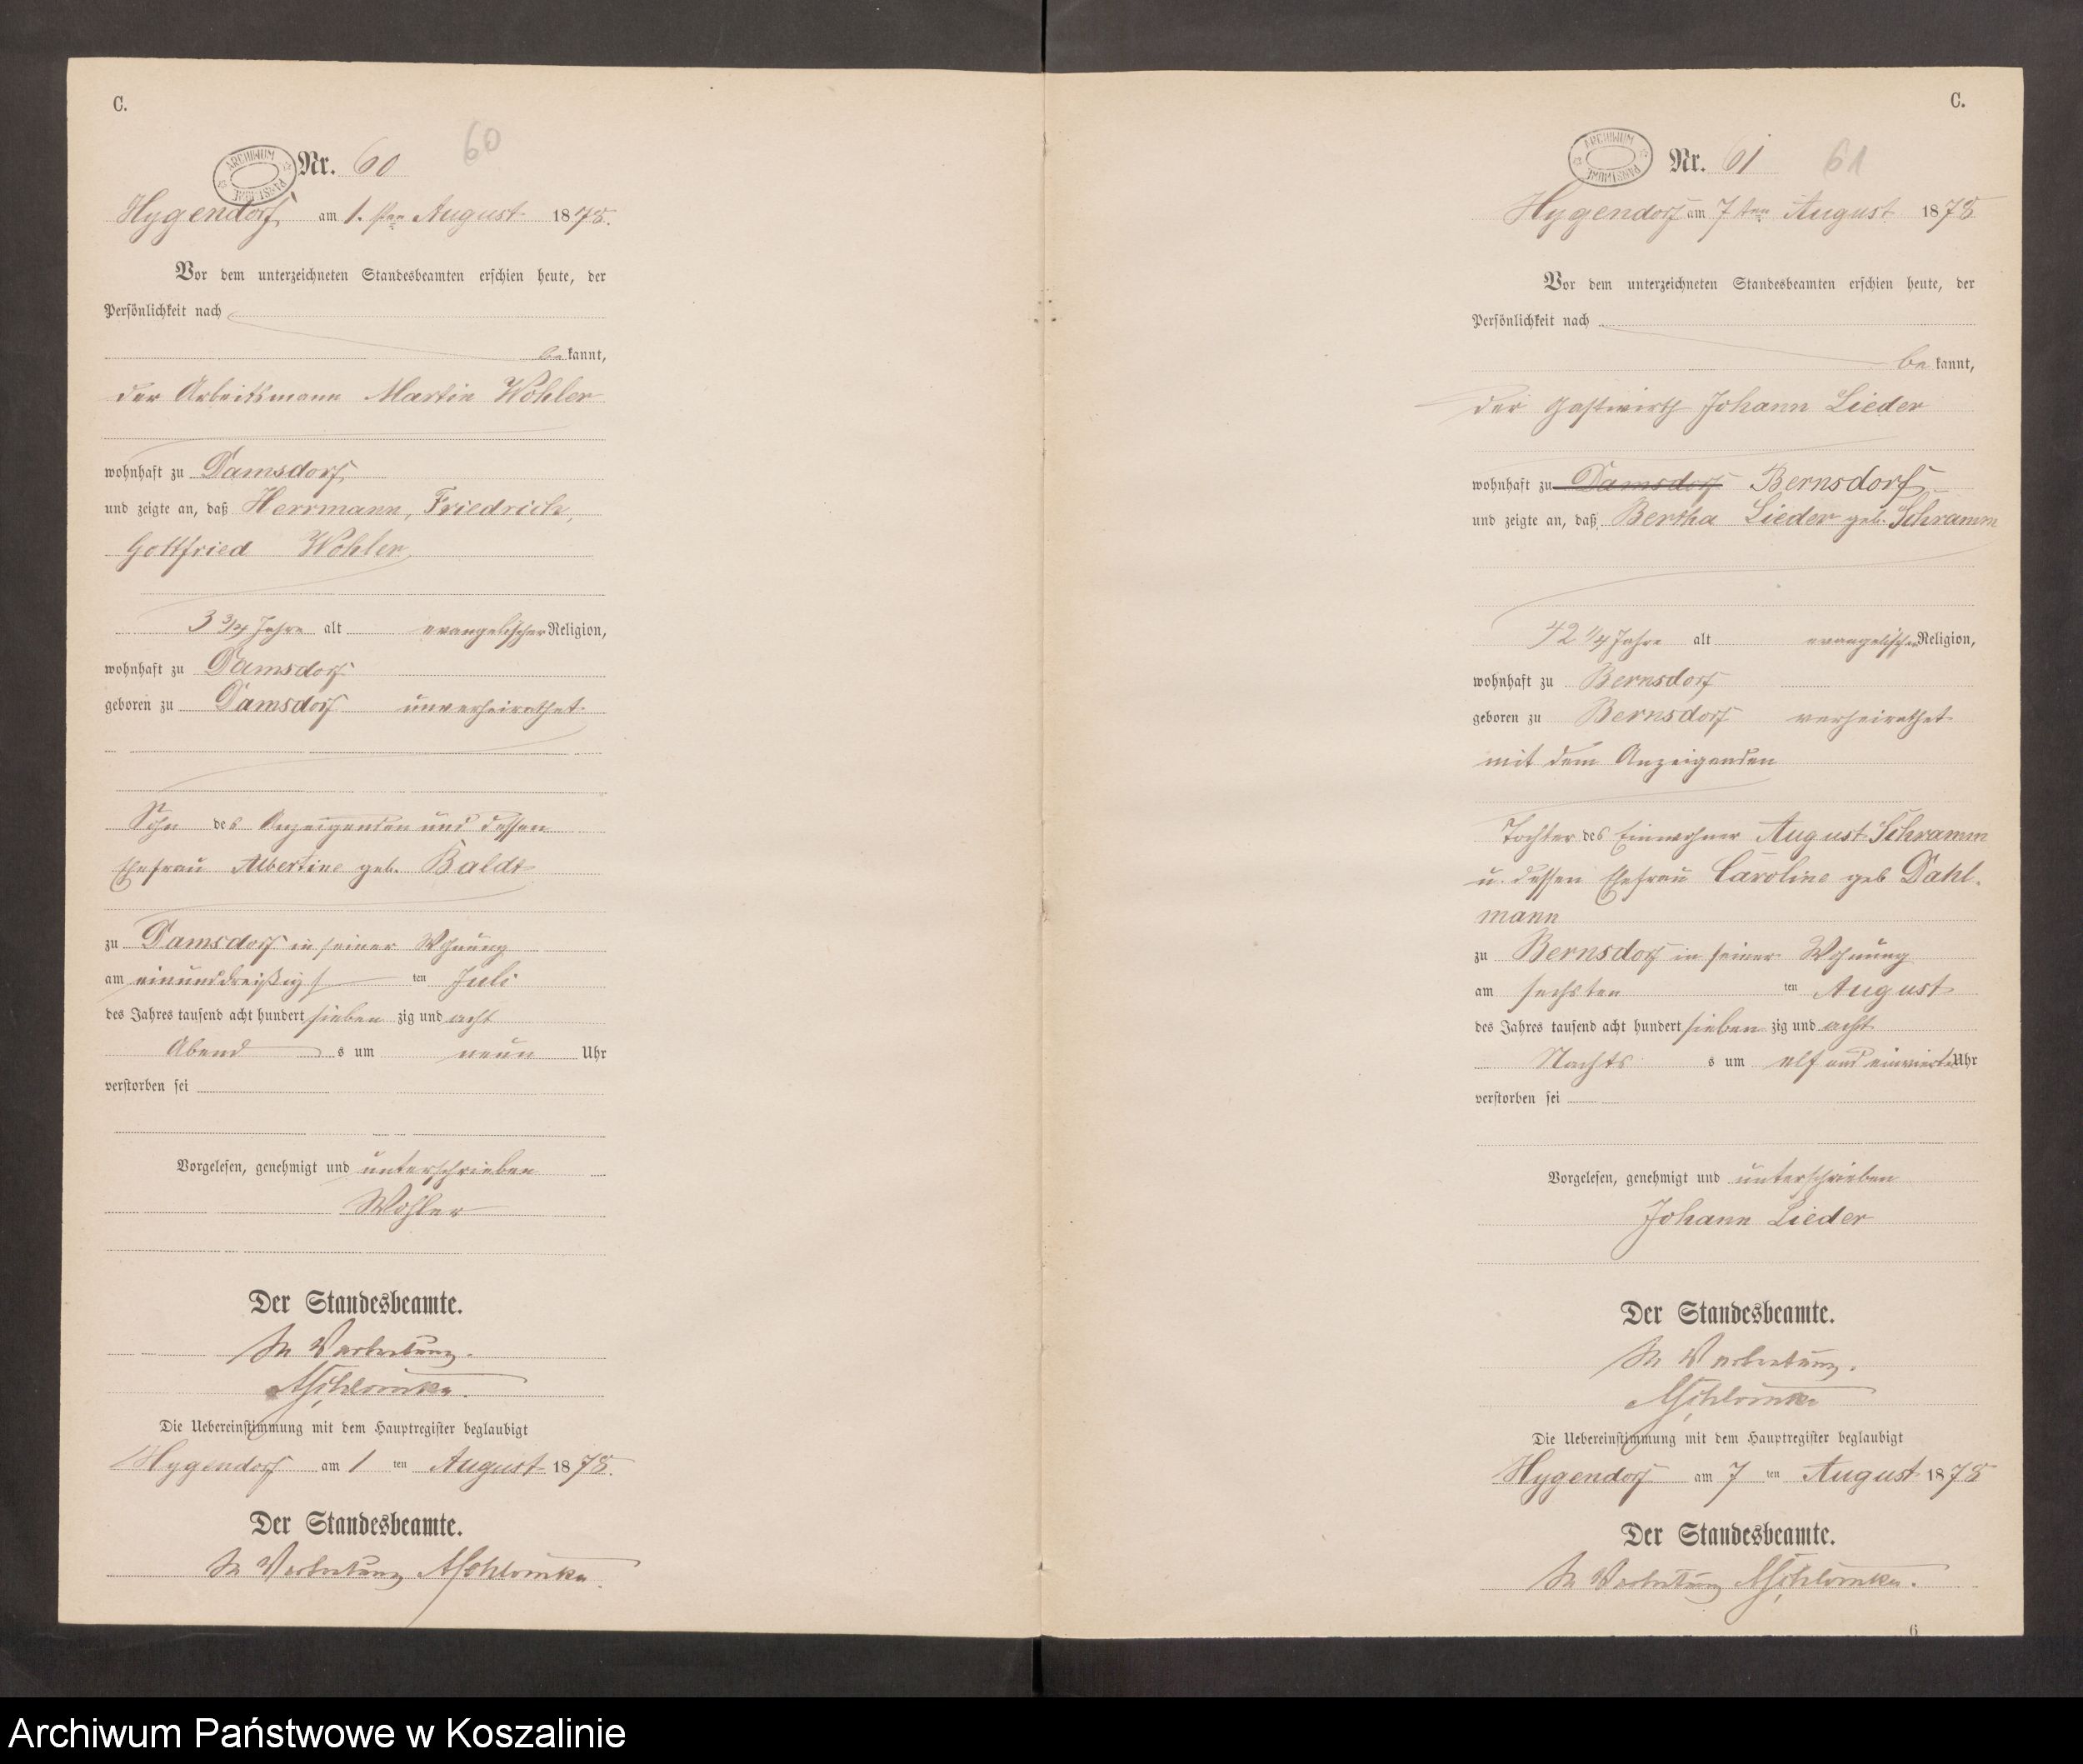 C.
Nr. 60
60
ARCHIWUM PAŃSTWOWE
Hygendorf, am 1. sten August 1878.
Vor dem unterzeichneten Standesbeamten erschien heute, der
Persönlichkeit nach
bekannt,
der Arbeitsmann Martin Wohler
wohnhaft zu Damsdorf,
und zeigte an, daß Herrmann, Friedrich,
Gottfried Wohler,
3 3/4 Jahre alt evangelischer Religion,
wohnhaft zu Damsdorf
geboren zu Damsdorf unverheirathet
Sohn des Anzeigenden und dessen
Ehefrau Albertine geb. Baldt
zu Damsdorf in seiner Wohnung
am einunddreißigst ten Juli
des Jahres tausend acht hundert sieben zig und acht
Abend s um neun Uhr
verstorben sei
Vorgelesen, genehmigt und unterschrieben
Wohler
Der Standesbeamte.
In Vertretung.
Die Uebereinstimmung mit dem Hauptregister beglaubigt
Hygendorf am 1 ten August 1878.
Der Standesbeamte.
In Vertretung
C.
Nr. 61
61
ARCHIWUM PAŃSTWOWE
Hygendorf am 7 ten August 1878
Vor dem unterzeichneten Standesbeamten erschien heute, der
Persönlichkeit nach
bekannt,
der Gastwirth Johann Lieder
wohnhaft zu Damsdorf Bernsdorf
und zeigte an, daß Bertha Lieder geb. Schramm
42 1/4 Jahre alt evangelischer Religion,
wohnhaft zu Bernsdorf
geboren zu Bernsdorf verheirathet
mit dem Anzeigenden
Tochter des Einwohner August Schramm
u. dessen Ehefrau Caroline geb Dahl-
mann
zu Bernsdorf in seiner Wohnung
am sechsten ten August
des Jahres tausend acht hundert sieben zig und acht
Nachts s um elf und einviertel Uhr
verstorben sei
Vorgelesen, genehmigt und unterschrieben
Johann Lieder
Der Standesbeamte.
In Vertretung.
Die Uebereinstimmung mit dem Hauptregister beglaubigt
Hygendorf am 7 ten August 1878
Der Standesbeamte.
In Vertretung
6
Archiwum Państwowe w Koszalinie